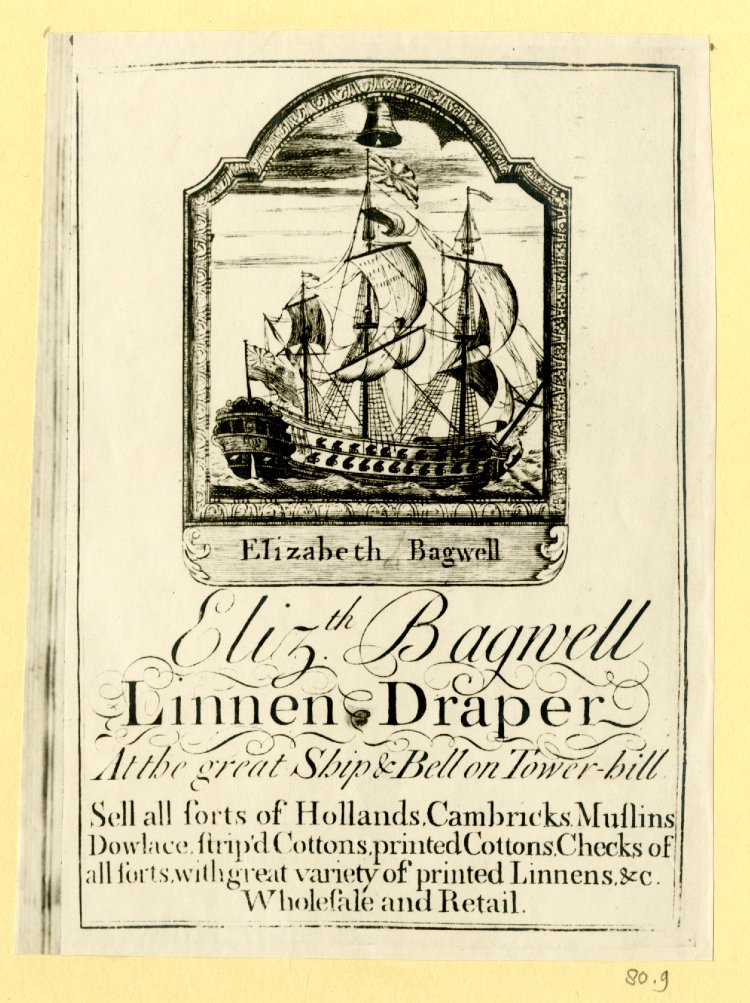 Elizabeth Bagwell
Eliz.th Bagwell
Linnen Draper
At the great Ship & Bell on Tower-hill
Sell all ſorts of Hollands, Cambricks, Muſlins
Dowlace, ſtrip'd Cottons, printed Cottons, Checks of
all ſorts, with great variety of printed Linnens, &c.
Wholeſale and Retail.
80.9